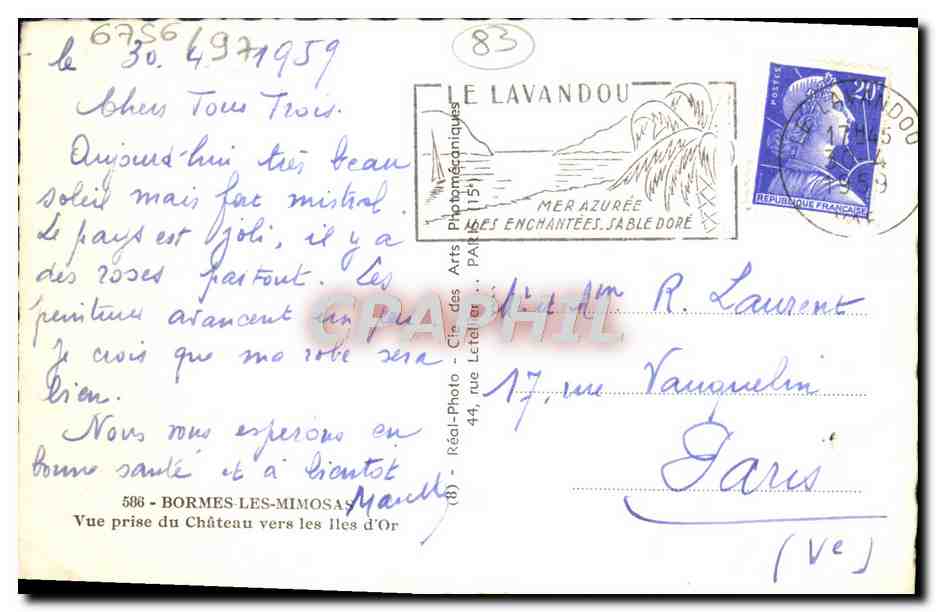 6756/497
83
le 30. 4. 1959
Chers Tous Trois.
Aujourd'hui très beau
soleil mais fort mistral.
Le pays est joli, il y a
des roses partout. Les
peintures avancent un peu
Je crois que ma robe sera
bien.
Nous vous esperons en
bonne santé et à bientot
586 - BORMES-LES-MIMOSAS
Vue prise du Château vers les Iles d'Or
(8) - Réal-Photo - Cie des Arts Photomécaniques
44, rue Letellier .. PARIS (15e)
LE LAVANDOU
MER AZURÉE
ILES ENCHANTÉES. SABLE DORÉ
POSTES 20F
REPUBLIQUE FRANÇAISE
LE LAVANDOU
17H45
30-4
1959
VAR
CPAPHIL
Mr et Mm R. Laurent
17, rue Vauquelin
Paris
(Ve)